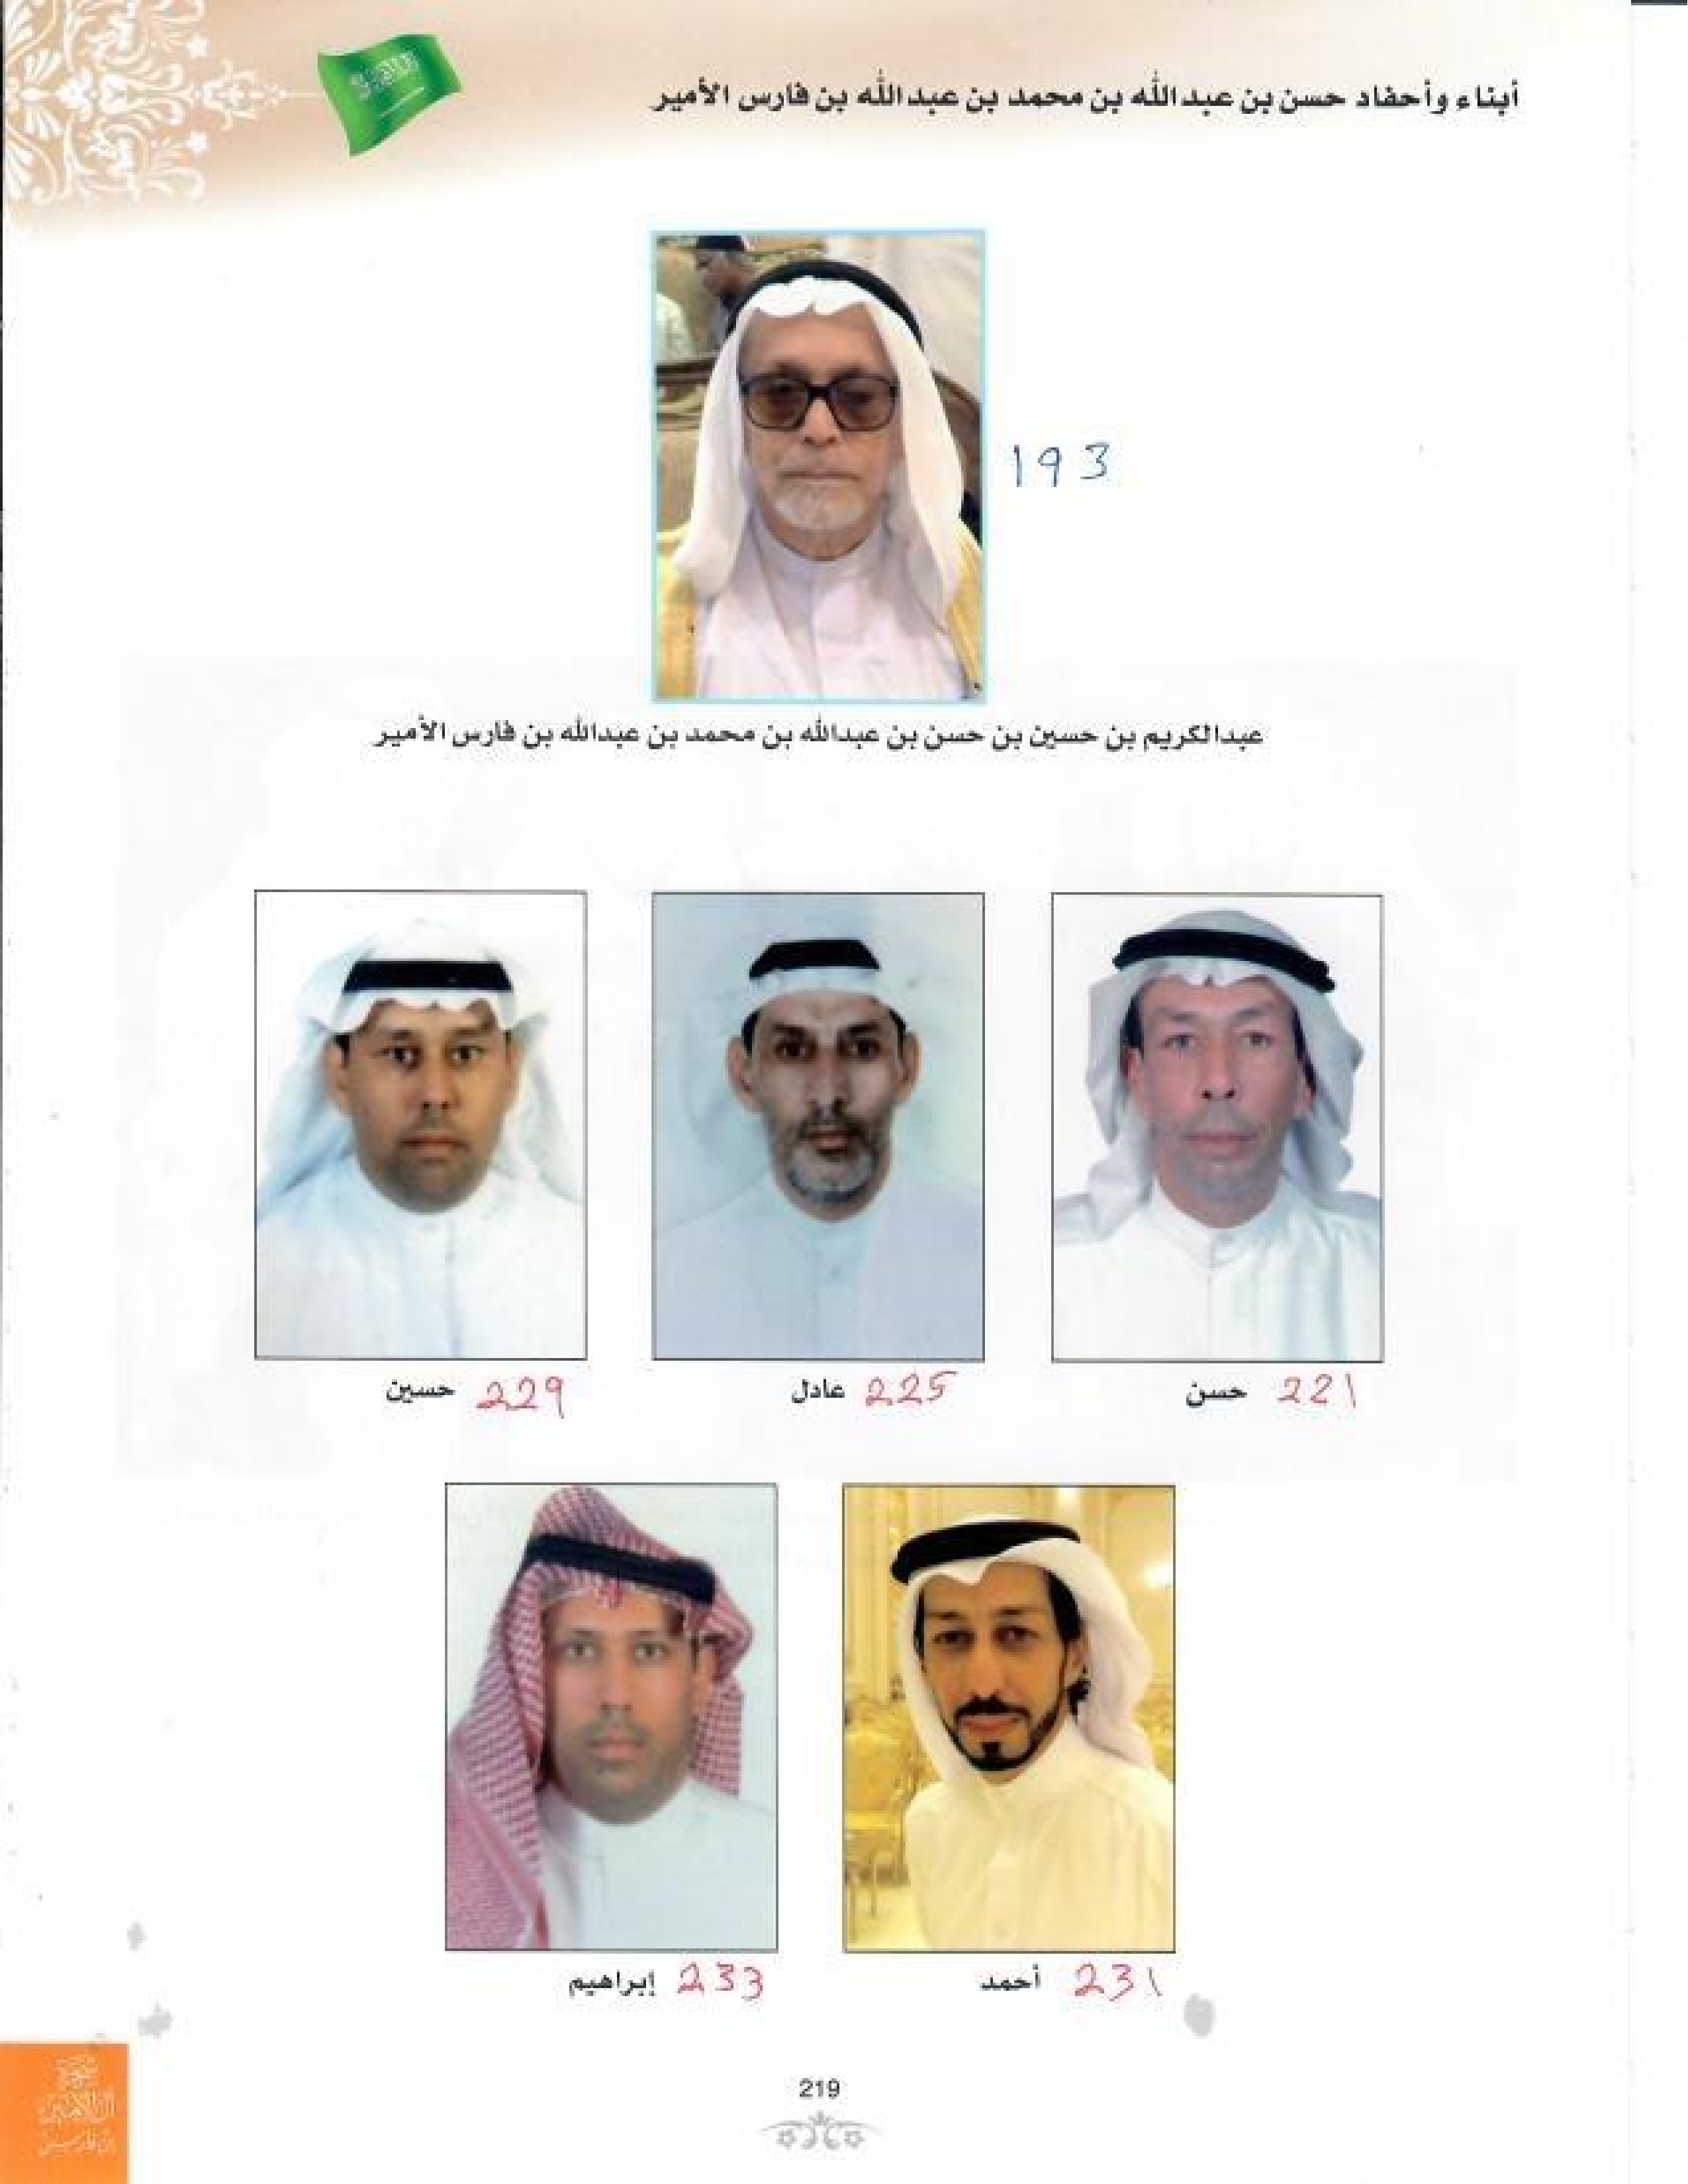 أبناء وأحفاد حسن بن عبدالله بن محمد بن عبدالله بن فارس الأمير
193
عبدالكريم بن حسين بن حسن بن عبدالله بن محمد بن عبدالله بن فارس الأمير
221 حسن
225 عادل
229 حسين
231 أحمد
233 إبراهيم
219
شجرة
بن فارس